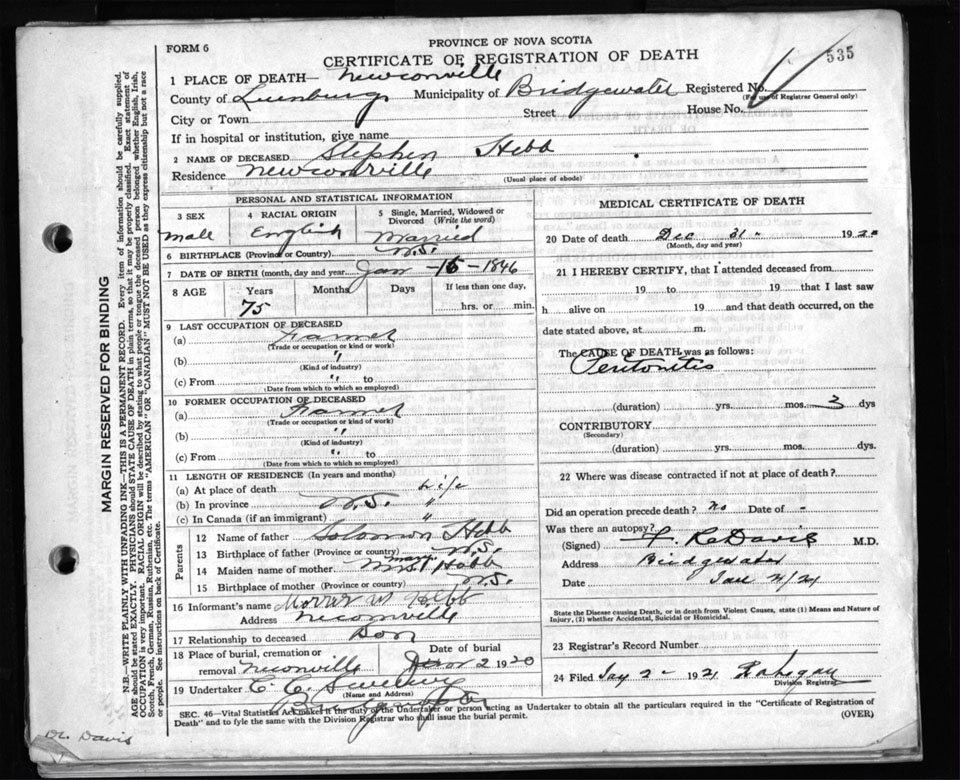 PROVINCE OF NOVA SCOTIA
FORM 6
CERTIFICATE OF REGISTRATION OF DEATH
535
1 PLACE OF DEATH— Newconville
County of Lunenburg Municipality of Bridgewater Registered No.
(For use of Registrar General only)
City or Town Street House No.
If in hospital or institution, give name
2 NAME OF DECEASED Stephen Hebb
Residence Newconville
(Usual place of abode)
PERSONAL AND STATISTICAL INFORMATION
3 SEX 4 RACIAL ORIGIN 5 Single, Married, Widowed or Divorced (Write the word)
Male English Married
6 BIRTHPLACE (Province or Country) N.S.
7 DATE OF BIRTH (month, day and year) Jan - 15 - 1846
8 AGE Years Months Days If less than one day,
75 hrs. or min.
9 LAST OCCUPATION OF DECEASED
(a) Farmer
(Trade or occupation or kind or work)
(b) "
(Kind of industry)
(c) From " to
(Date from which to which so employed)
10 FORMER OCCUPATION OF DECEASED
(a) Farmer
(Trade or occupation or kind or work)
(b) "
(Kind of industry)
(c) From " to
(Date from which to which so employed)
11 LENGTH OF RESIDENCE (In years and months)
(a) At place of death Life
(b) In province N.S. "
(c) In Canada (if an immigrant) "
Parents
12 Name of father Solomon Hebb
13 Birthplace of father (Province or country) N.S.
14 Maiden name of mother Hebb
15 Birthplace of mother (Province or country) N.S.
16 Informant's name W Hebb
Address Neconville
17 Relationship to deceased Son
18 Place of burial, cremation or removal Neconville
Date of burial 2 1920
19 Undertaker C. C.
(Name and Address)
MEDICAL CERTIFICATE OF DEATH
20 Date of death Dec 31 " 1920
(Month, day and year)
21 I HEREBY CERTIFY, that I attended deceased from
19 to 19 that I last saw
h alive on 19 and that death occurred, on the
date stated above, at m.
The CAUSE OF DEATH was as follows:
Peritonitis
(duration) yrs. mos. 3 dys
CONTRIBUTORY
(Secondary)
(duration) yrs. mos. dys.
22 Where was disease contracted if not at place of death?
Did an operation precede death? No Date of -
Was there an autopsy?
(Signed) Davis M.D.
Address Bridgewater
Date Jan
State the Disease causing Death, or in death from Violent Causes, state (1) Means and Nature of Injury, (2) whether Accidental, Suicidal or Homicidal.
23 Registrar's Record Number
24 Filed Jay 2 - 1921
Division Registrar
SEC. 46—Vital Statistics Act makes it the duty of the Undertaker or person acting as Undertaker to obtain all the particulars required in the "Certificate of Registration of
Death" and to fyle the same with the Division Registrar who shall issue the burial permit.
(OVER)
Dr. Davis
MARGIN RESERVED FOR BINDING
N.B.—WRITE PLAINLY WITH UNFADING INK—THIS IS A PERMANENT RECORD. Every item of information should be carefully supplied.
AGE should be stated EXACTLY. PHYSICIANS should STATE CAUSE OF DEATH in plain terms, so that it may be properly classified. Exact statement of
OCCUPATION is very important. RACIAL ORIGIN will be described by stating to what people or tongue the deceased person belonged whether English, Irish,
Scotch, French, German, Russian, Ruthenian, etc. The terms "AMERICAN" OR "CANADIAN" MUST NOT BE USED as they express citizenship but not a race
or people. See instructions on back of Certificate.